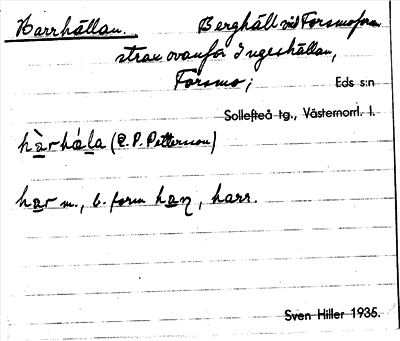 Harrhällan. Berghäll vid Forsmoforsen
strax ovanför Ingeshällan,
Forsmo; Eds s:n
Sollefteå tg., Västernorrl. l.
hàrhála (E. P. Pettersson)
har m., b. form haṇ, harr.
Sven Hiller 1935.